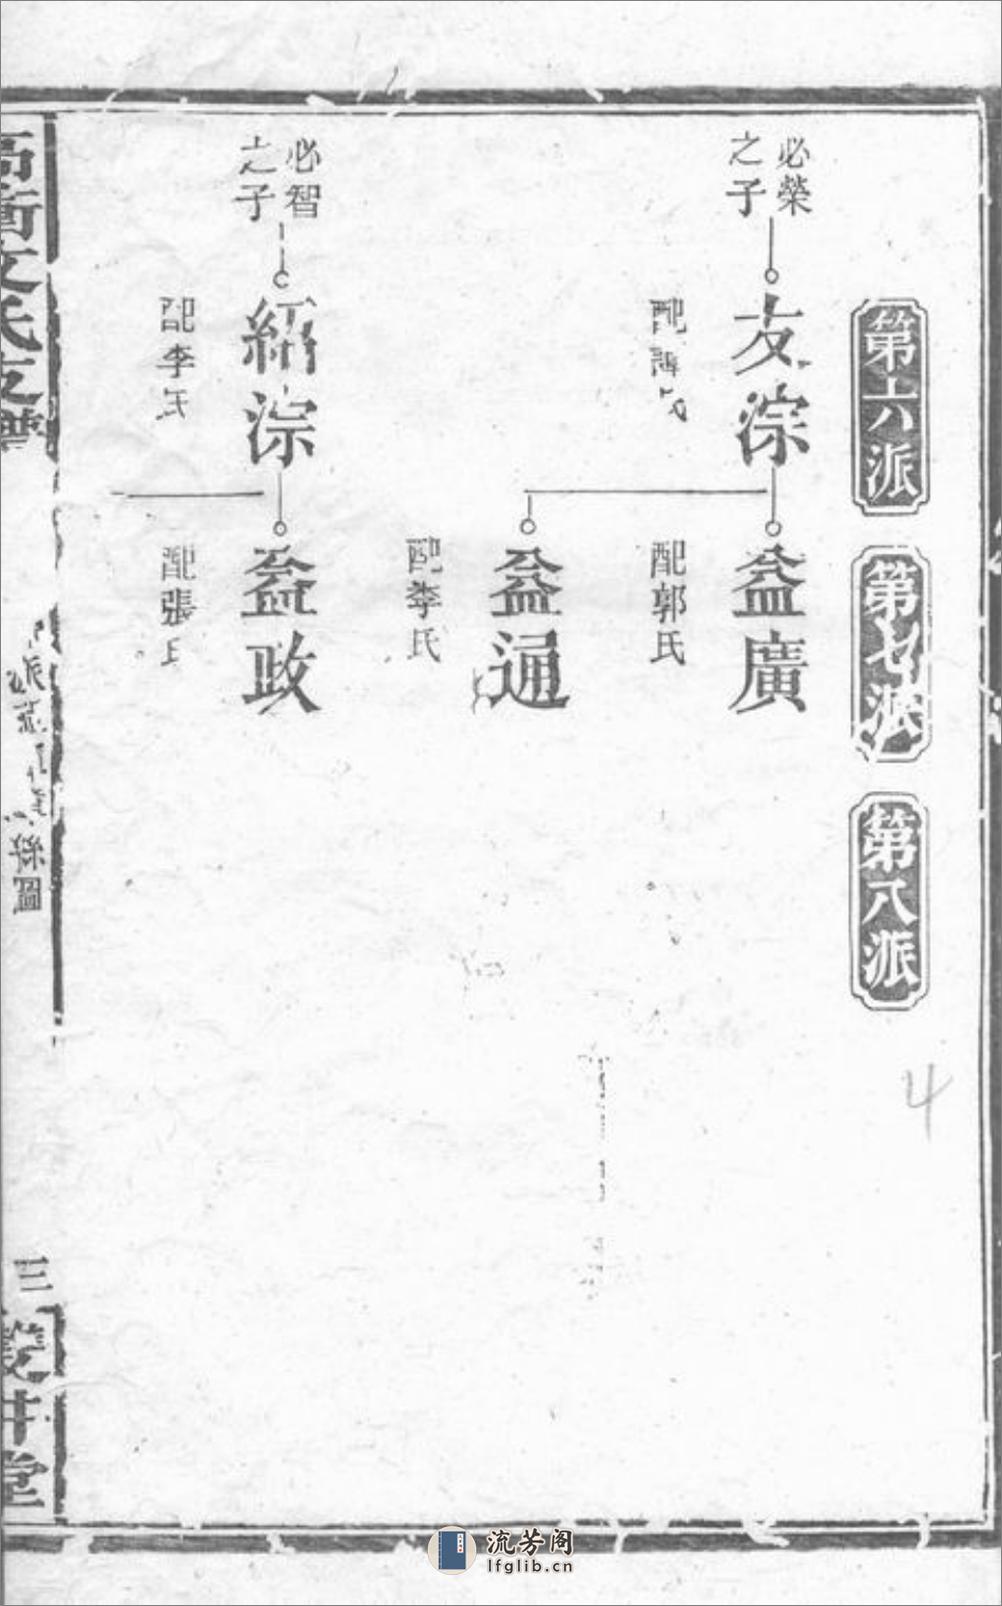 第十八派
第七派
第八派
必榮
之子
友淙
配譚氏
益廣
配郭氏
益通
配李氏
必智
之子
紹淙
配李氏
益政
配張氏
衡文氏支譜
派
孫圖
三
堂
4
流芳阁
lfglib.cn